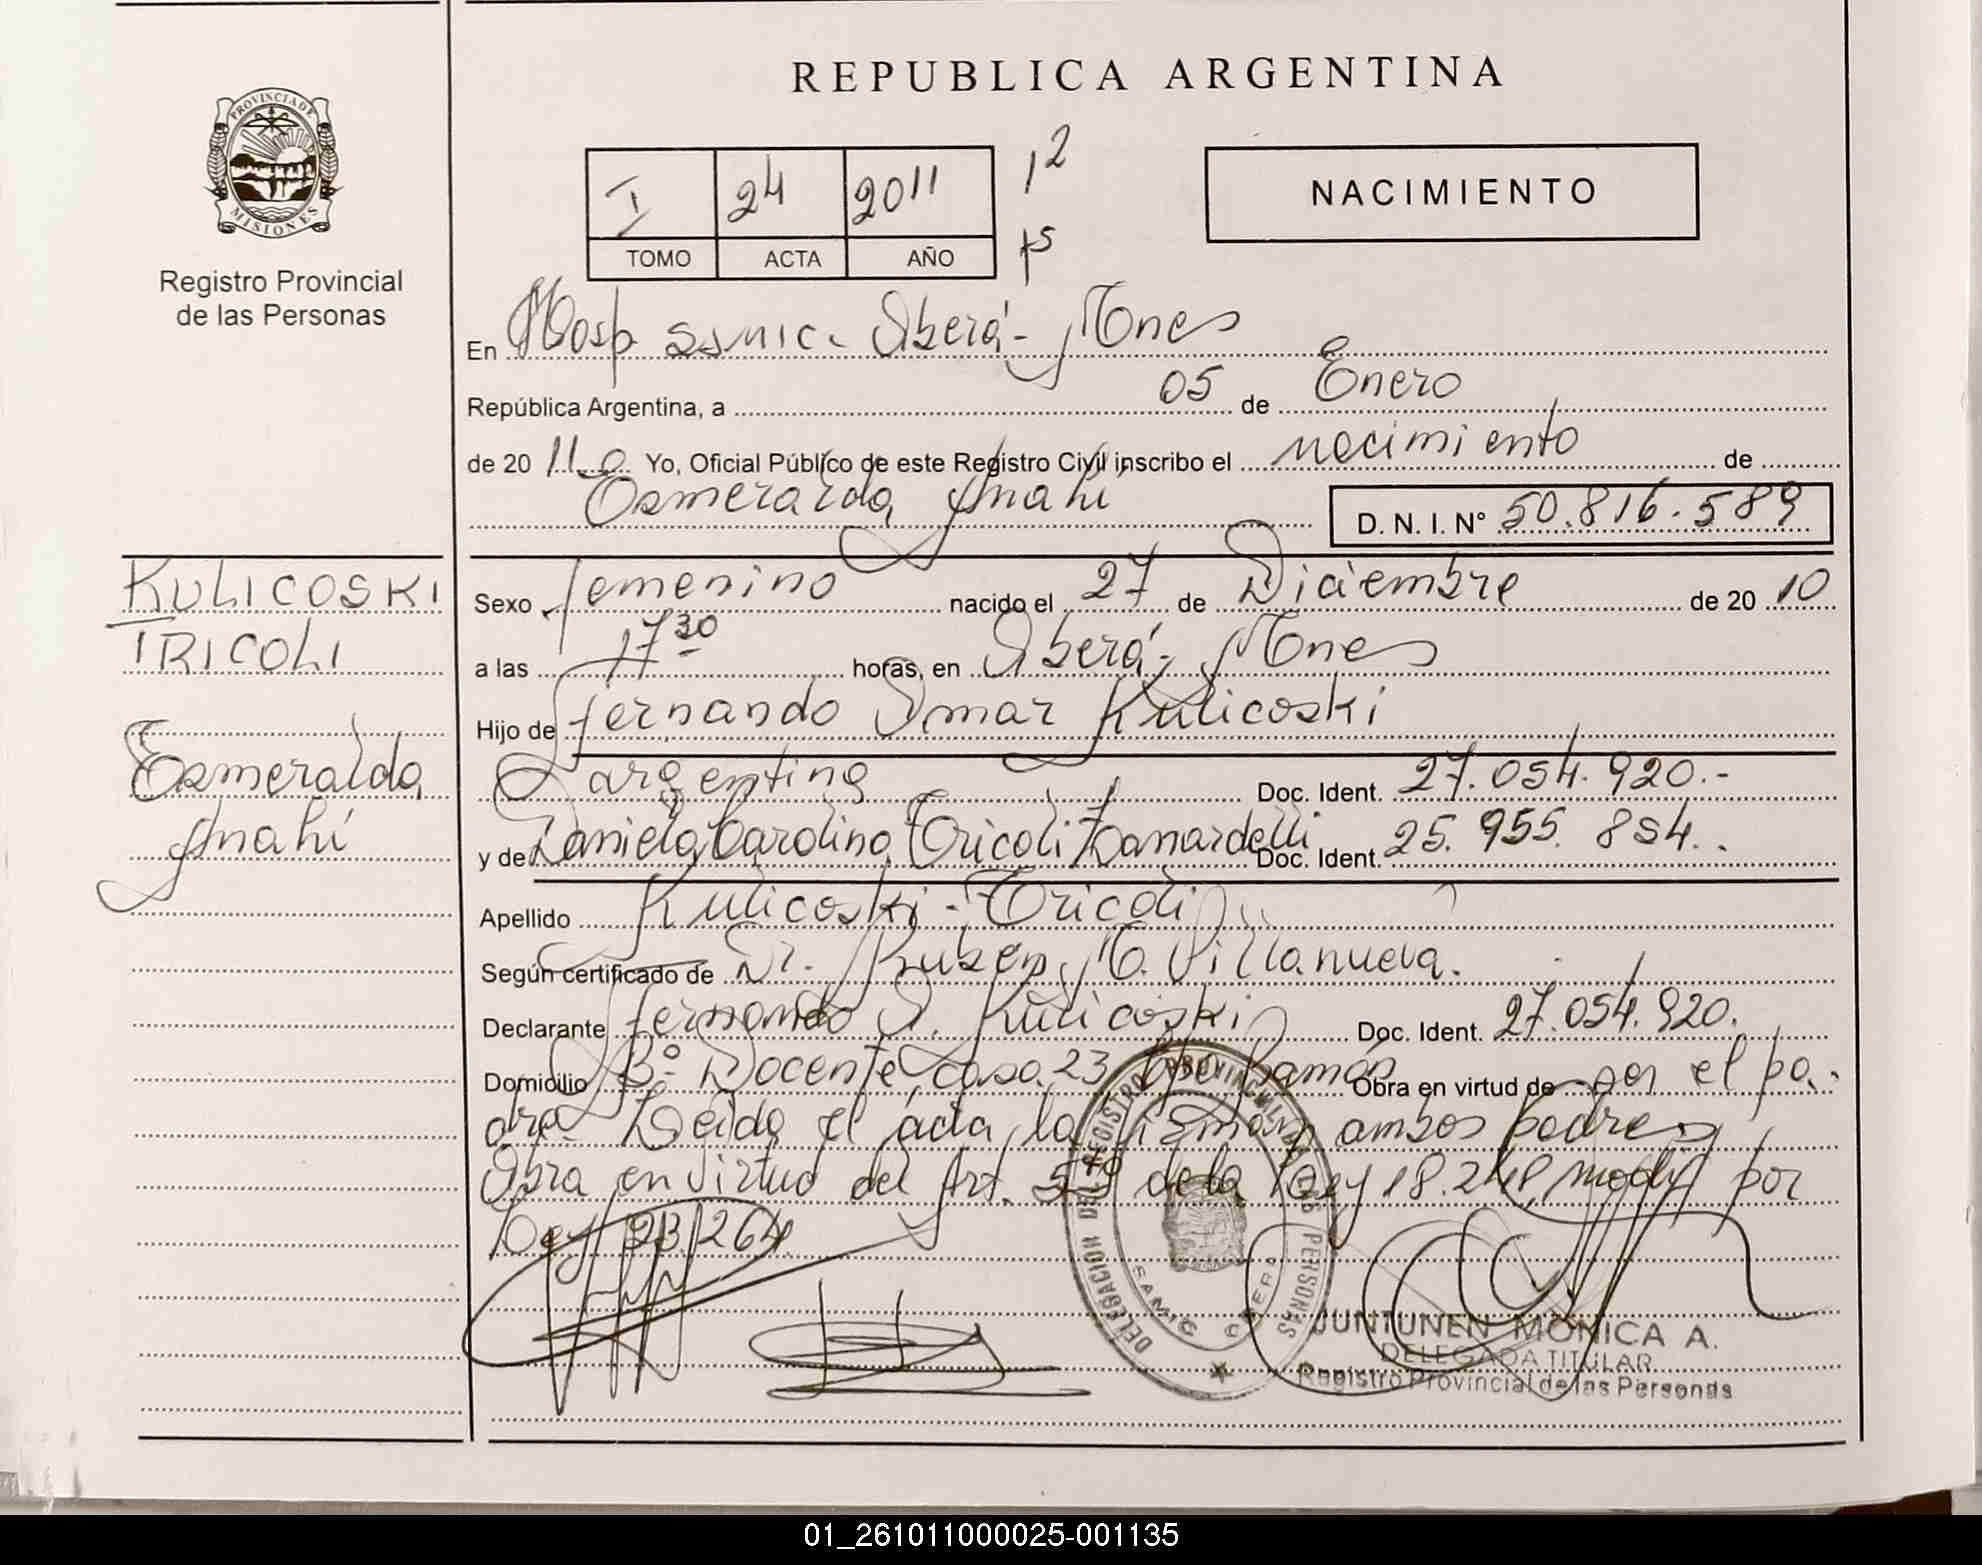 REPUBLICA ARGENTINA
PROVINCIA DE
MISIONES
Registro Provincial
de las Personas
I 24 2011
TOMO ACTA AÑO
12
15
NACIMIENTO
En Hosp SSMIC. Oberá - Mnes
República Argentina, a 05 de Enero
de 20 11 Yo, Oficial Público de este Registro Civil inscribo el nacimiento de
Esmeralda Anahí D. N. I. N° 50.816.589
KULICOSKI
TRICOLI
Esmeralda
Anahí
Sexo femenino nacido el 27 de Diciembre de 20 10
a las 17 30 horas, en Oberá - Mnes
Hijo de fernando Omar Kulicoski
argentino Doc. Ident. 27.054.920.-
y de Daniela Carolina Tricoli Zanardelli Doc. Ident. 25.955.854.
Apellido Kulicoski - Tricoli
Según certificado de Dr. Ruben M. Villanueva.
Declarante fernando O. Kulicoski Doc. Ident. 27.054.920.
Domicilio B° Docente casa 23 Gdor Ramón Obra en virtud de por el pa-
dre Leida el acta, la firman ambos padres
Obra en virtud del Art. 5to de la Ley 18.248, modif por
Ley 23.264.
DELEGACION DEL REGISTRO PROVINCIAL DE LAS PERSONAS
SAMIC OBERA
JUNTUNEN MONICA A.
DELEGADA TITULAR
Registro Provincial de las Personas
01_261011000025-001135